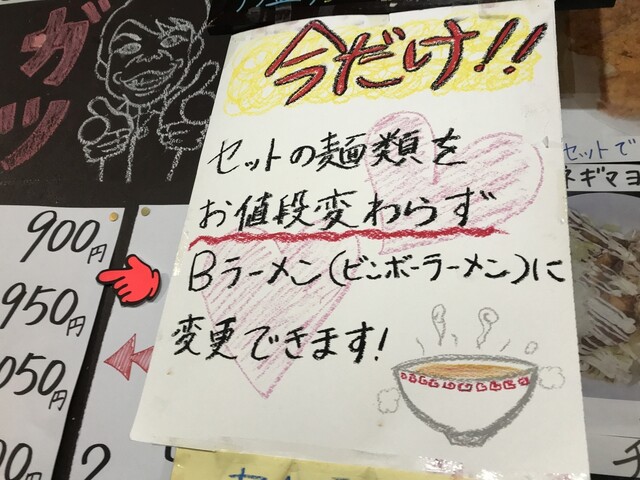 ガツ
今だけ!!
セットの麺類を
お値段変わらず
Bラーメン(ビンボーラーメン)に
変更できます!
900円
950円
050円
セットで
ネギマヨ